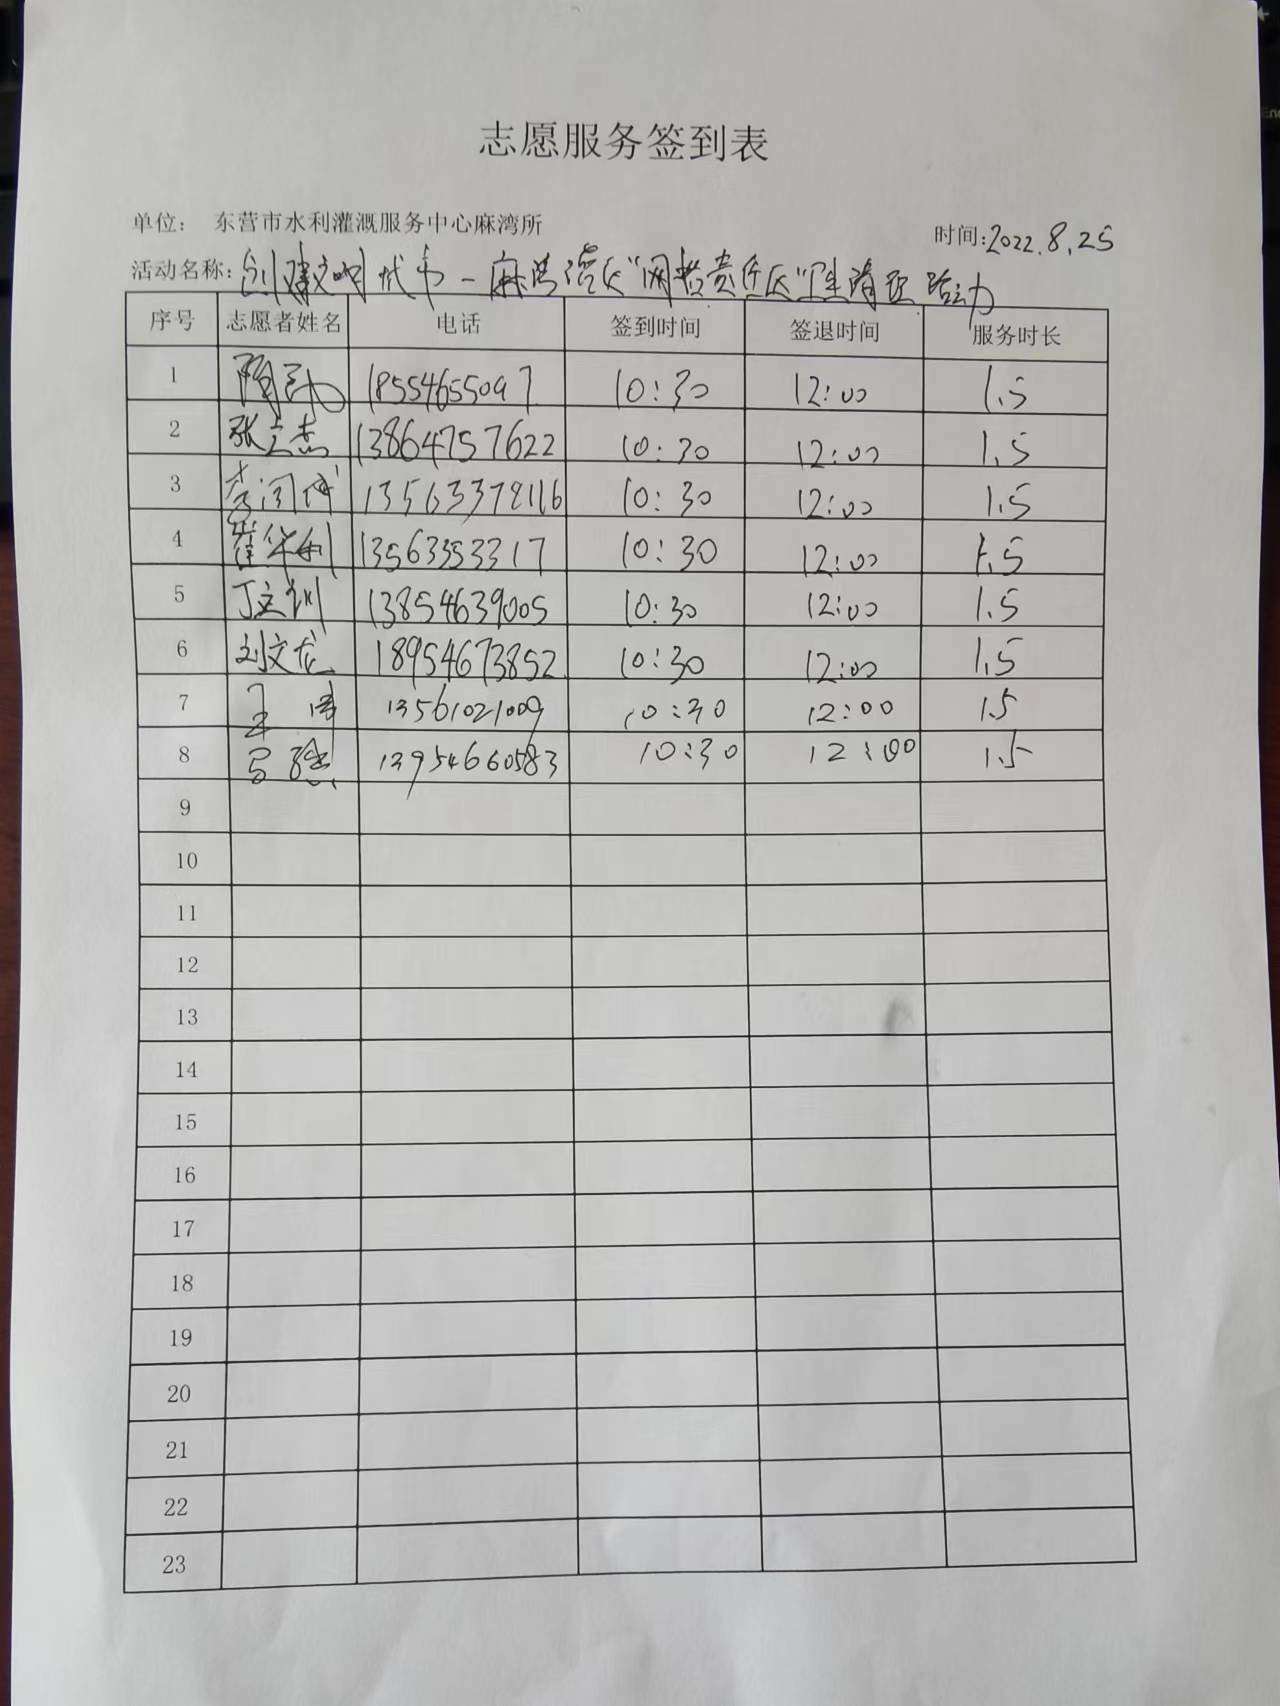 志愿服务签到表
单位： 东营市水利灌溉服务中心麻湾所
时间:2022.8.25
活动名称: 创建文明城市 - 麻湾 "网格责任区"卫生清
序号 志愿者姓名 电话 签到时间 签退时间 服务时长
1 18554655097 10:30 12:00 1.5
2 张立杰 13864757622 10:30 12:00 1.5
3 李 13563378116 10:30 12:00 1.5
4 崔华利 13563353317 10:30 12:00 1.5
5 丁文训 13854639005 10:30 12:00 1.5
6 刘文龙 18954673852 10:30 12:00 1.5
7 王 13561021009 10:30 12:00 1.5
8 13954660583 10:30 12:00 1.5
9
10
11
12
13
14
15
16
17
18
19
20
21
22
23